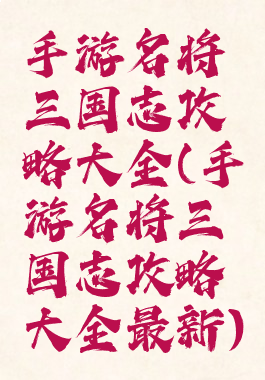 手游名将
三国志攻
略大全(手
游名将三
国志攻略
大全最新)